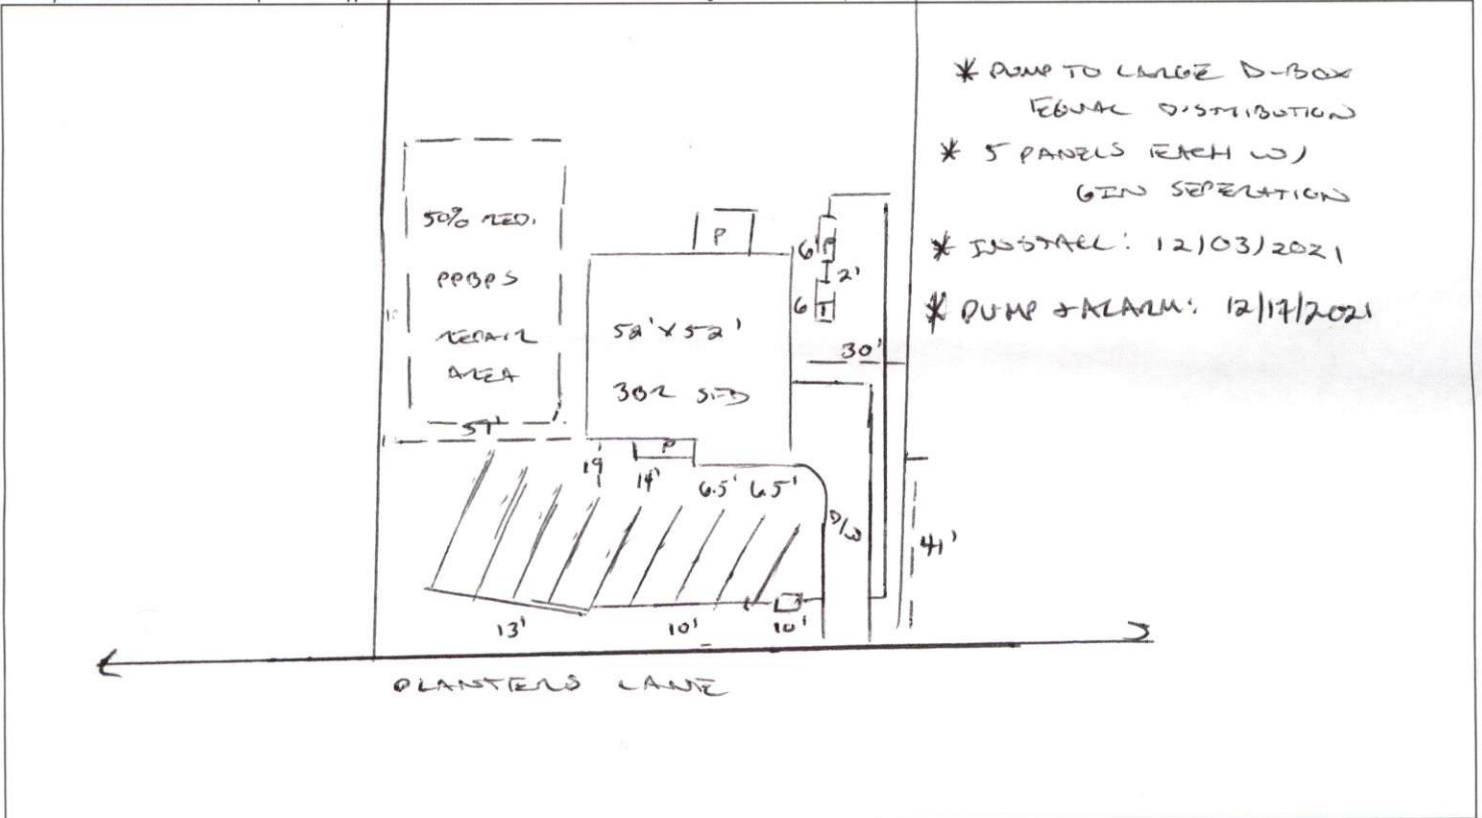 * PUMP TO LARGE D-BOX
EQUAL DISTRIBUTION
* 5 PANELS EACH W/
6IN SEPERATION
* INSTALL: 12/03/2021
* PUMP + ALARM: 12/17/2021
50% RED.
PPBPS
REPAIR
AREA
57'
P
52' X 52'
3BR SFD
P
6'
P
2'
6
T
30'
19'
14'
6.5' 6.5'
D/W
41'
13'
10'
10'
PLANTERS LANE